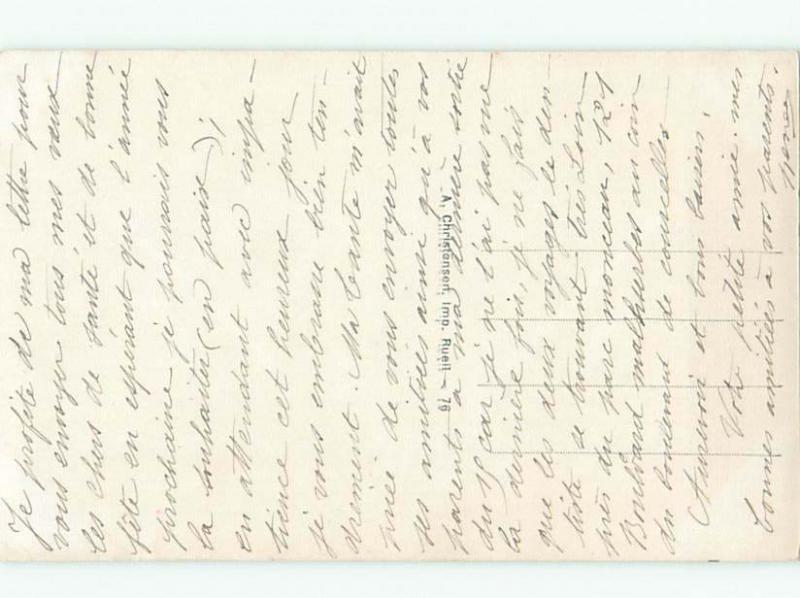 Je profite de ma lettre pour
vous envoyer tous mes vœux
les chers de santé et de bonne
fête en espérant que l'année
prochaine je pourrais vous
la souhaiter (en paix);
en attendant avec impa-
tience cet heureux jour
je vous embrasse bien ten-
drement. Ma tante m'avait
priée de vous envoyer toutes
ses amitiés ainsi qu'à vos
parents à ma dernière
du 15 car je ne l'ai pas
la dernière fois, je ne fais
que les deux voyages le den-
tiste se trouvant très loin
près du parc monceau, 121
Boulevard malesherbes au coin
du boulevard de courcelles
Aurevoir et bons baisers,
Votre petite amie. mes
bonnes amitiés à vos parents.
A. Christensen, Imp. Rueil - 76